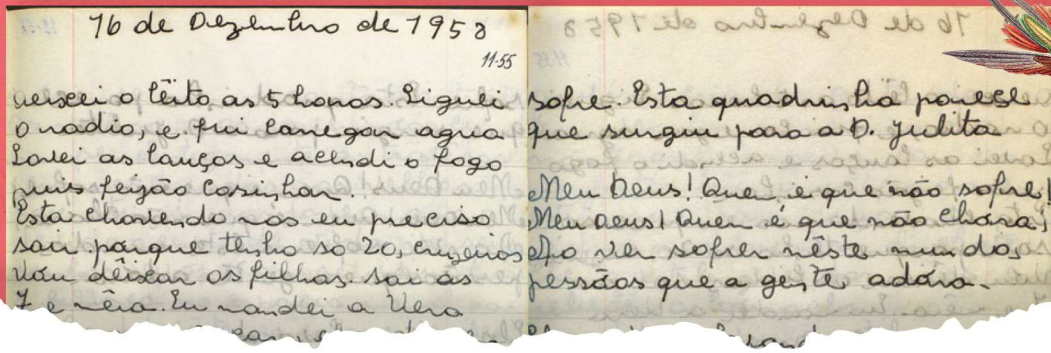 16 de Dezembro de 1958
11-55
deixei o lêito, as 5 horas. Liguei
o radio, e fui carregar agua
Lavei as louças e acendi o fogo
puis feijão cosinhar.
Esta chovendo mas eu preciso
sair porque tenho so 20, cruzeiros
Vou dêixar os filhos. sai ás
7 e mêia. Eu mandei a Vera
sofre. Esta quadrinha parece
que surgiu para a D. Judita
Meu Deus! Quem, é que não sofre!
Meu Deus! Quem é que não chora!
Ao ver sofrer nêste mundo,
pessôas que a gente adóra.